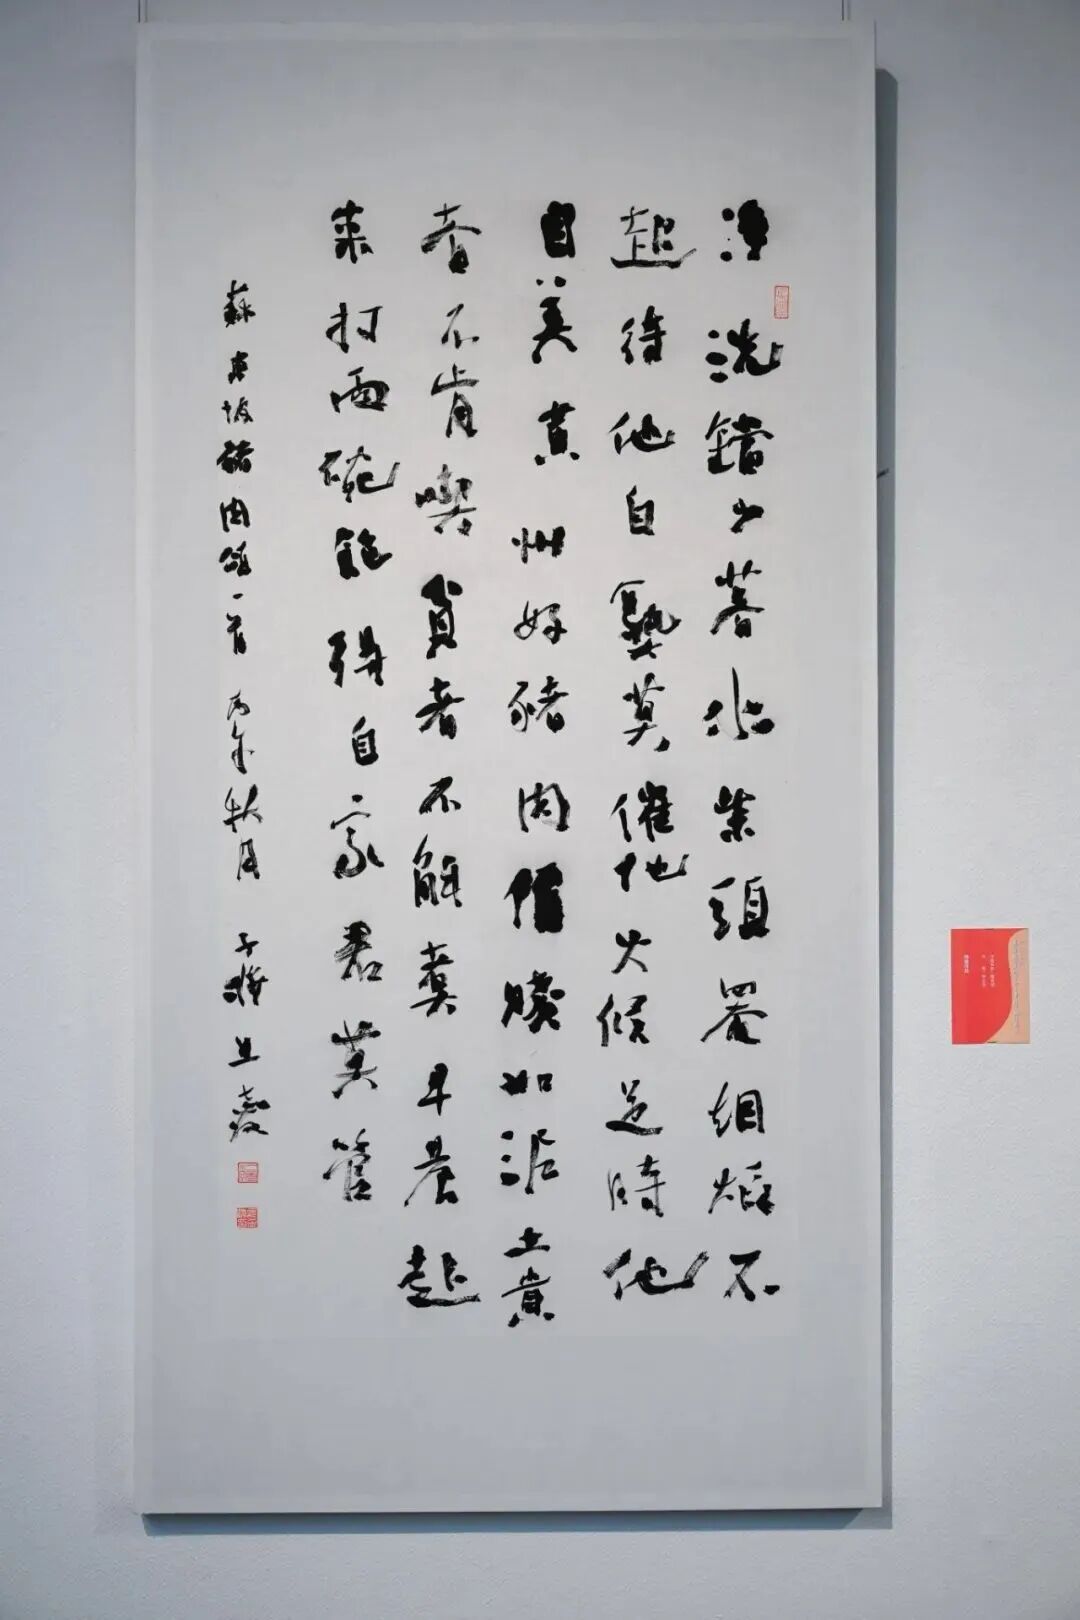 淨洗鐺少著水柴頭罨烟焰不
起待他自熟莫催他火候足時他
自美黃州好豬肉價賤如泥土貴
者不肯喫貧者不解煮早晨起
來打兩碗飽得自家君莫管
蘇東坡豬肉頌一首 秋月